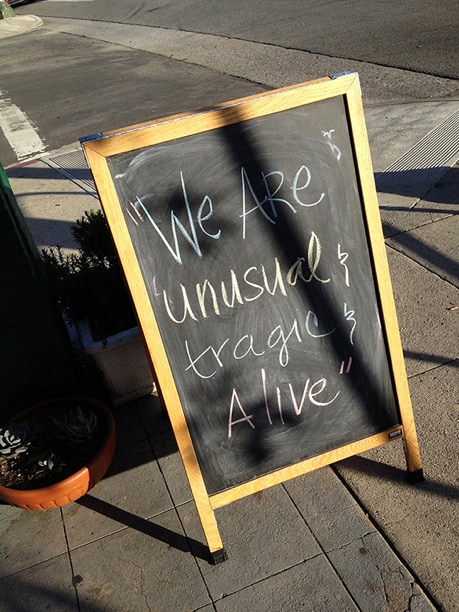 "We ARE
unusual &
tragic &
Alive"